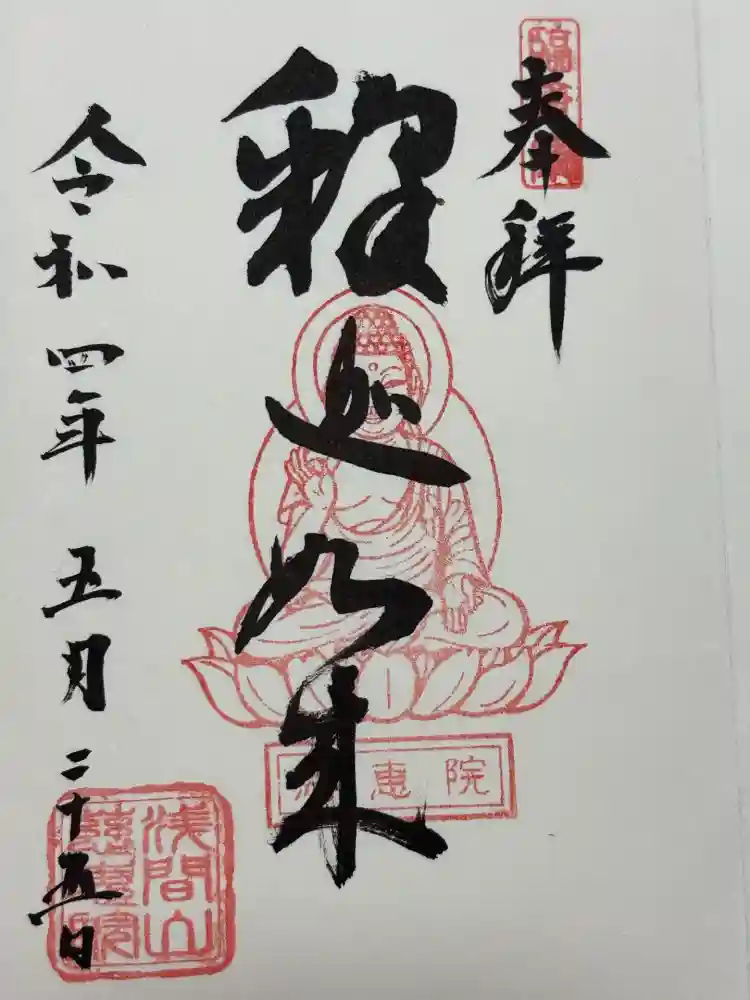 奉拝
釈迦如来
令和四年 五月二十五日
惠院
浅間山
慈惠院